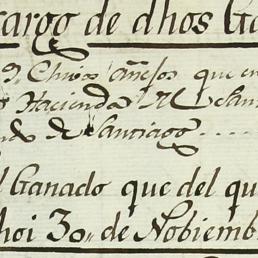 cargo de dhos Ga
D. Chivos Añejos que en
Hacienda de San
de Santiago ....
l Ganado que del qu
hoi 30,, de Nobiemb